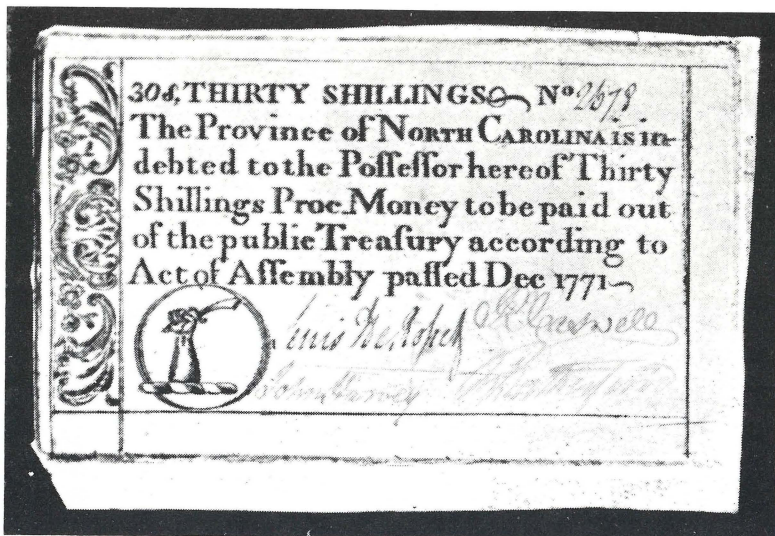 30s, THIRTY SHILLINGS Nº 2673
The Province of NORTH CAROLINA IS in-
debted to the Poſſeſſor hereof Thirty
Shillings Proc. Money to be paid out
of the public Treaſury according to
Act of Aſſembly paſſed Dec 1771
Lewis De Roſſet R Caswell
John Harvey